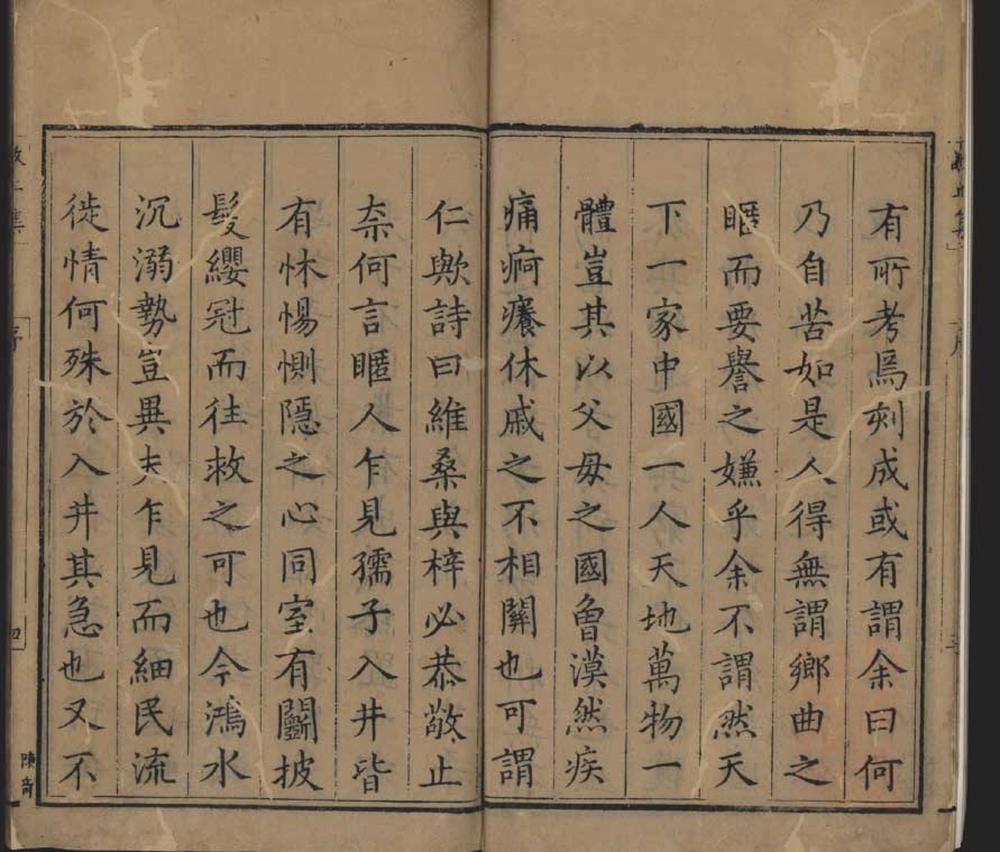 有所考焉刻成或有謂余曰何
乃自苦如是人得無謂鄉曲之
暱而要譽之嫌乎余不謂然天
下一家中國一人天地萬物一
體豈其以父母之國魯漠然疾
痛疴癢休戚之不相關也可謂
仁歟詩曰維桑與梓必恭敬止
柰何言暱人乍見孺子入井皆
有怵惕惻隱之心同室有鬬披
髮纓冠而往救之可也今鴻水
沉溺勢豈異夫乍見而細民流
徙情何殊於入井其急也又不
序
四